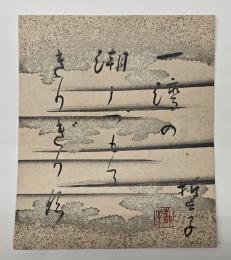 一湾の
潮しづもる
きりぎりす
誓子